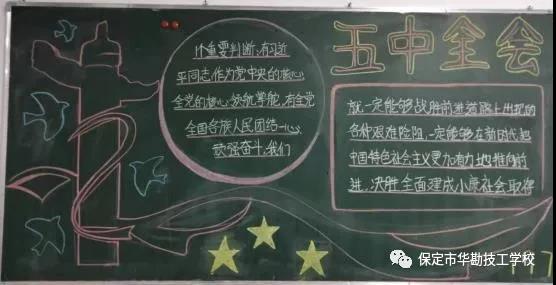 五中全会
1个重要判断，有习近
平同志作为党中央的核心、
全党的核心领航掌舵，有全党
全国各族人民团结一心、
顽强奋斗，我们
就一定能够战胜前进道路上出现的
各种艰难险阻，一定能够在新时代把
中国特色社会主义更加有力地推向前
进。决胜全面建成小康社会取得
保定市华勘技工学校